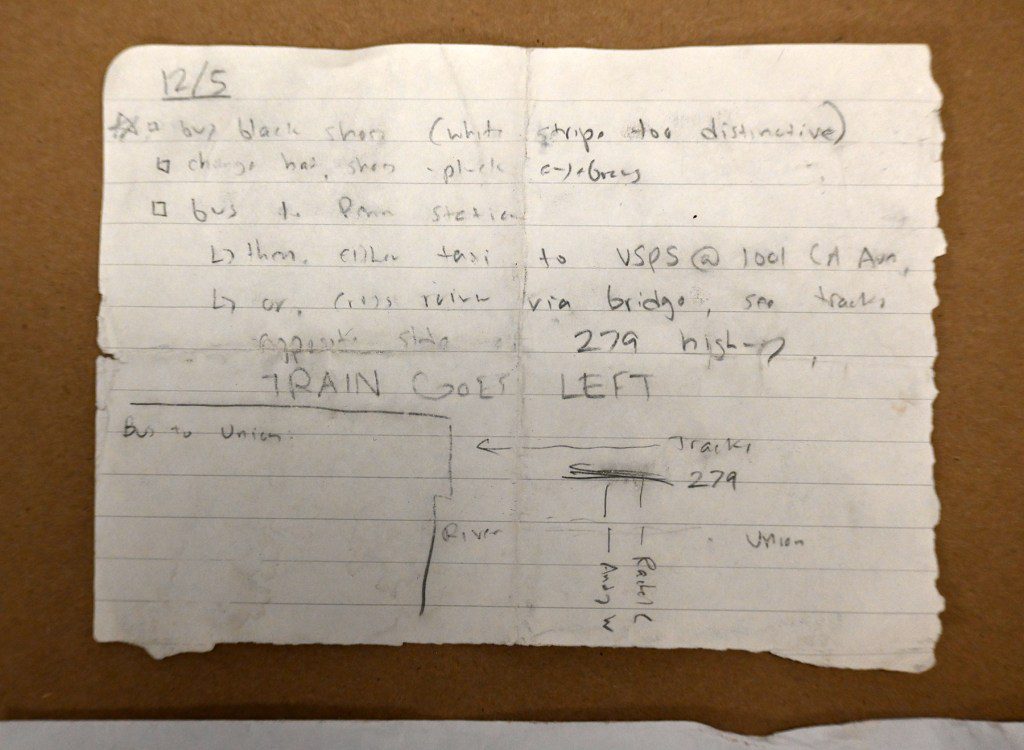 12/5
buy black shoes (white stripe too distinctive)
change hat, shoes, pluck eyebrows
bus to Penn station
then, either taxi to USPS @ 1001 CA Ave,
or, cross river via bridge, see tracks
opposite side of 279 highway,
TRAIN GOES LEFT
Bus to Union
Tracks
279
River
Union
Andy W
Rachel C